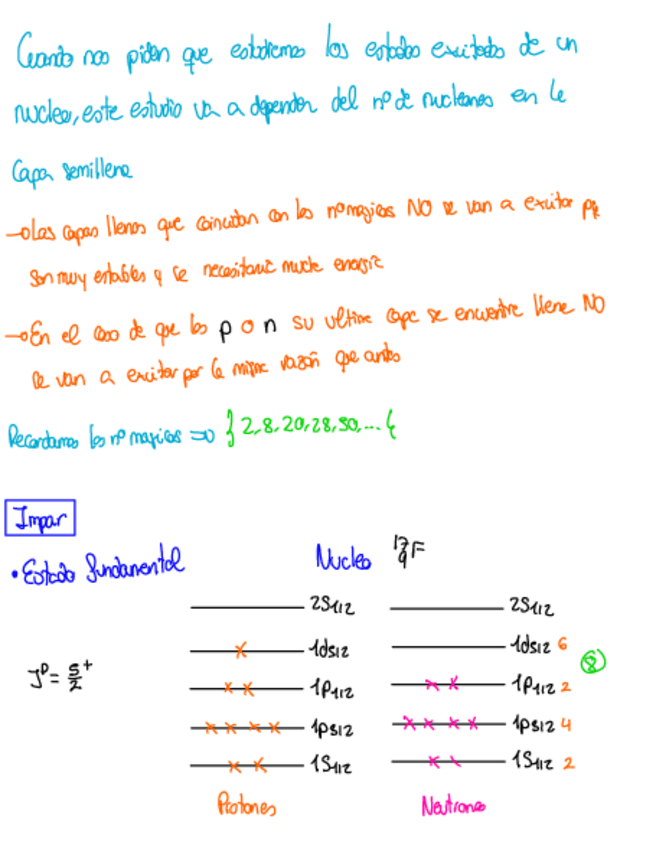 Cuando nos piden que estudiemos los estados exitados de un
nucleo, este estudio va a depender del nº de nucleones en la
capa semillena
→Las capas llenas que coincidan con los nºmagicos NO se van a exitar pq
son muy estables y se necesitaria mucha energia
→En el caso de que los p o n su ultima capa se encuentre llena NO
se van a exitar por la misma razón que antes
Recordamos los nº magicos ⇒ {2,8,20,28,50,...}
Impar
• Estado fundamental Nucleo ¹⁷₉F
2S1/2 2S1/2
1d5/2 1d5/2 6 ⑧
J^P = 5/2^+
1P1/2 1P1/2 2
1p3/2 1p3/2 4
1S1/2 1S1/2 2
Protones Neutrones